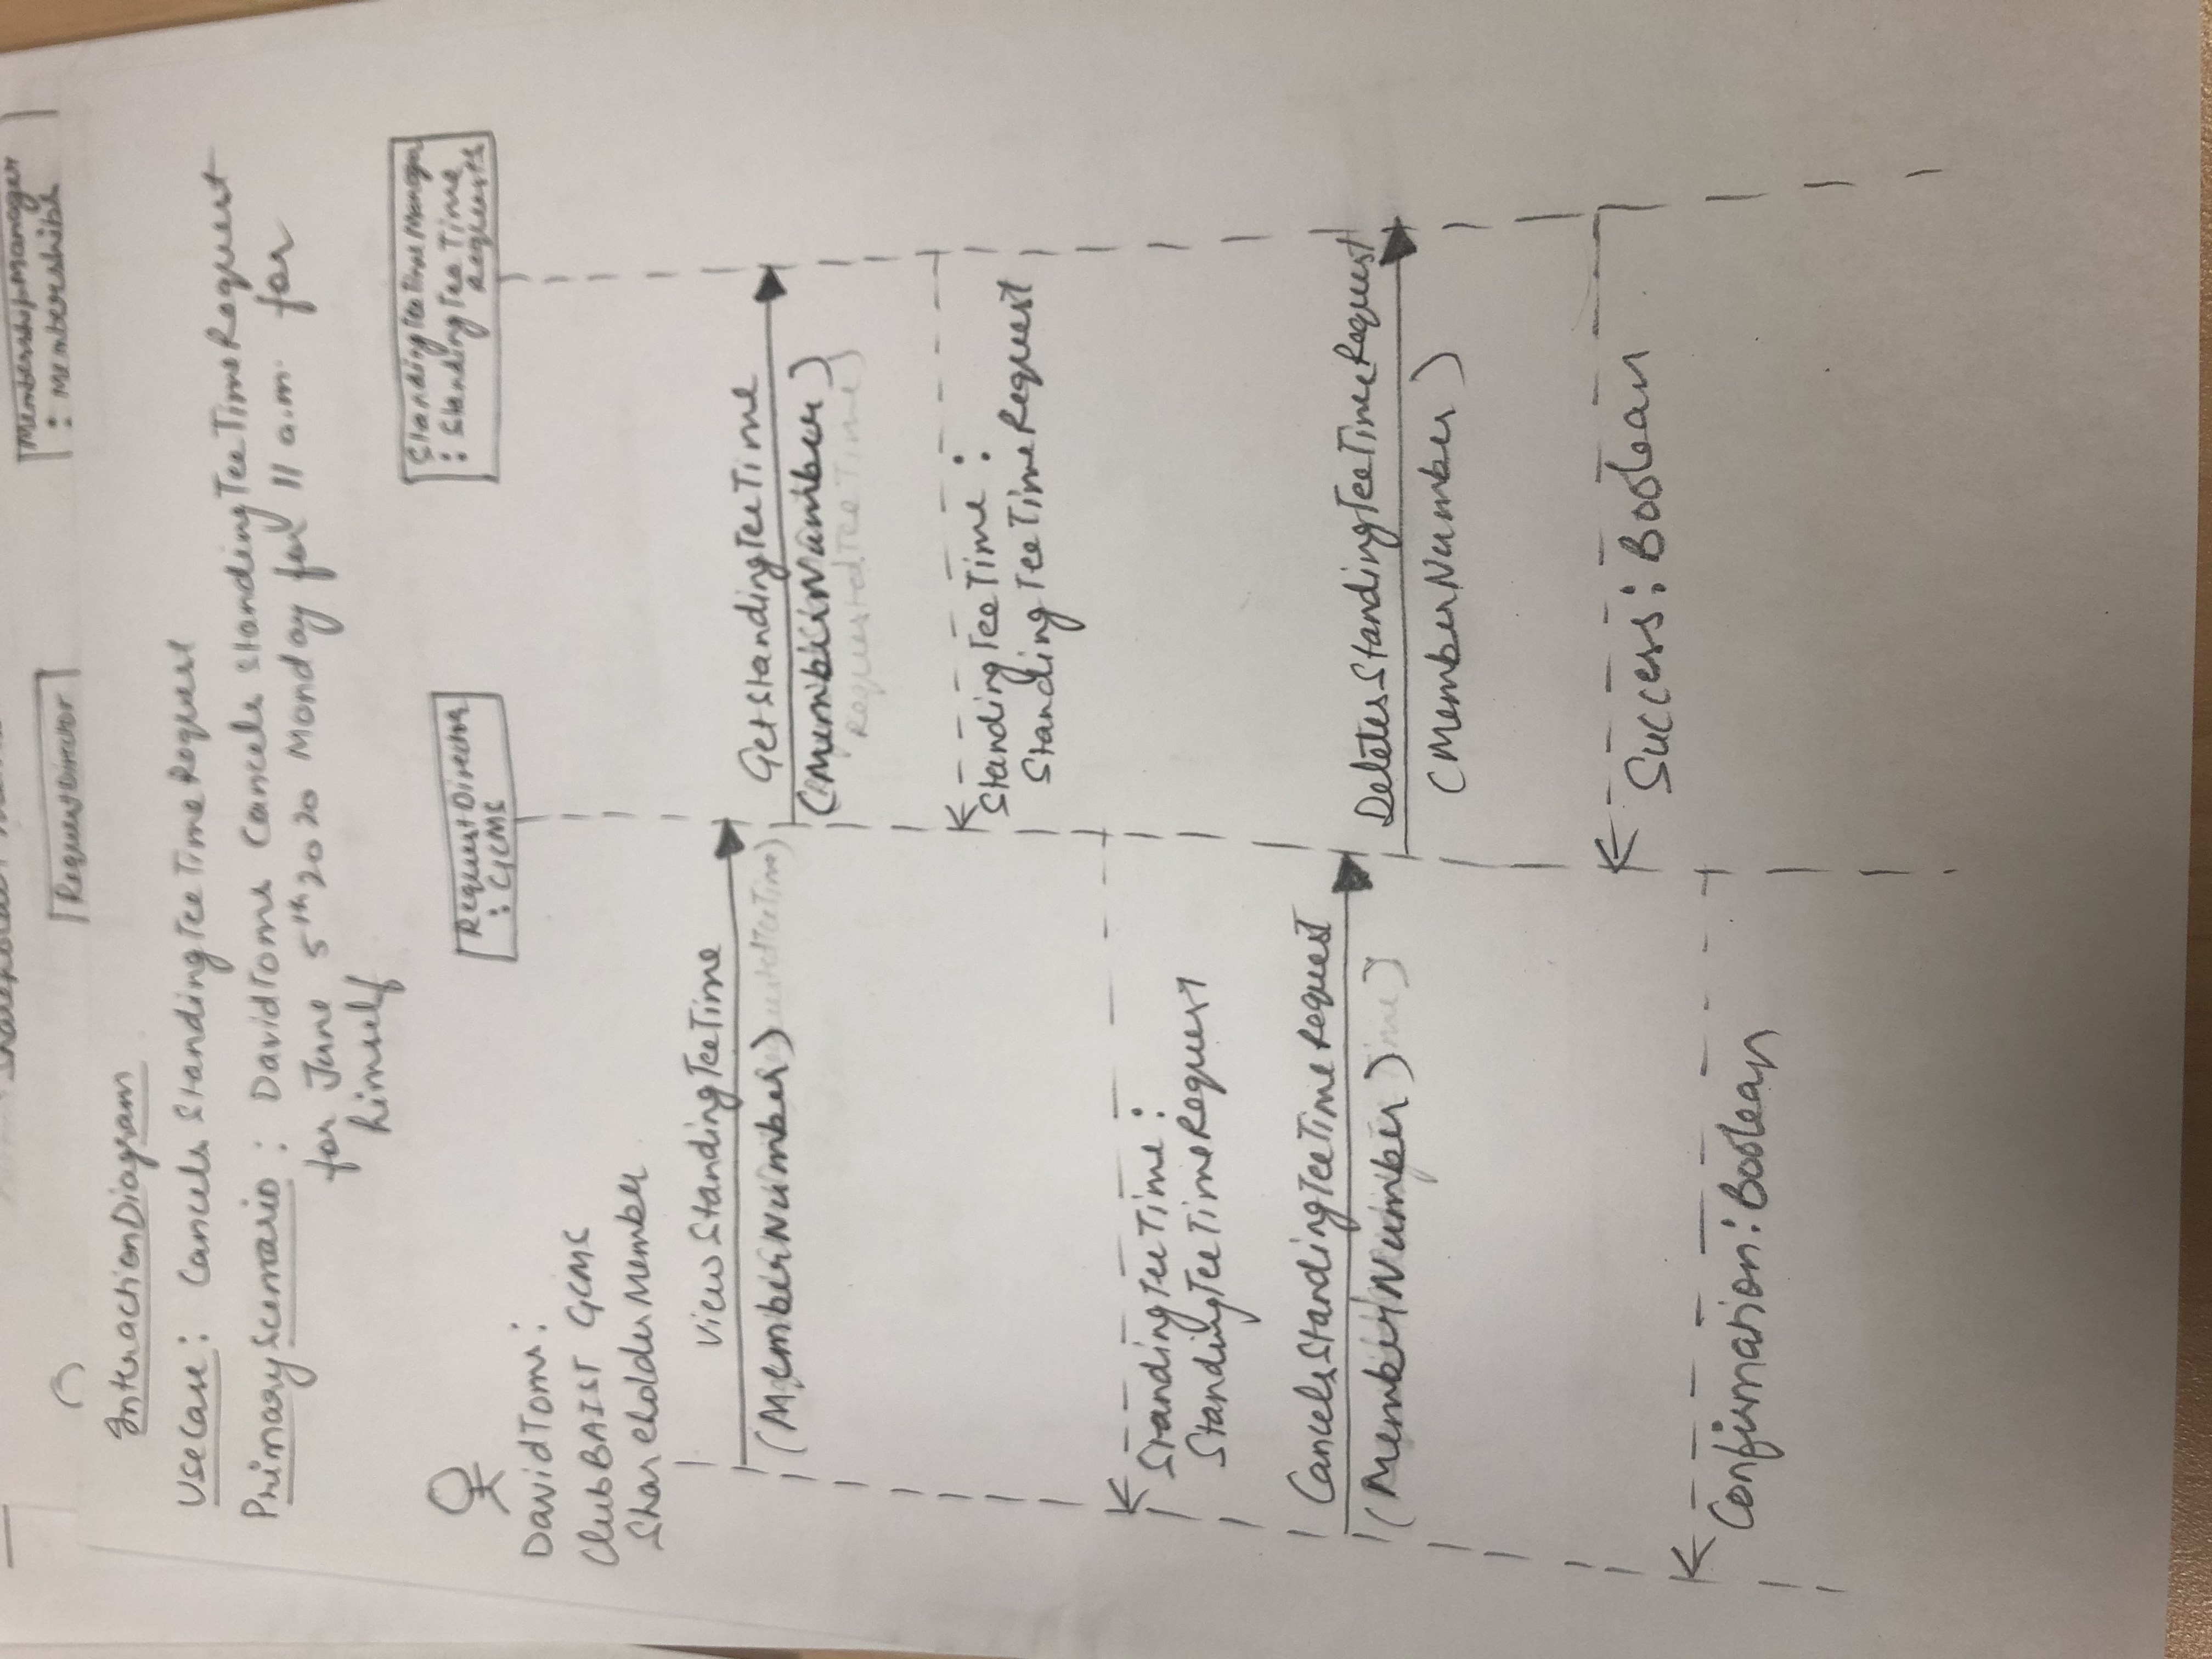 RequestDirector
MembershipManager
: Memberships
InteractionDiagram
UseCase: Cancels StandingTeeTimeRequest
PrimaryScenario: DavidToms Cancels StandingTeeTimeRequest
for June 5th 2020 Monday for 11 a.m. for
himself
RequestDirector
: GCMS
StandingTeeTimeManager
: StandingTeeTime
Requests
DavidToms:
ClubBAIST GCMS
ShareholderMember
ViewStandingTeeTime
(MemberNumber)
GetStandingTeeTime
(MemberNumber)
RequestedTeeTime)
StandingTeeTime :
StandingTeeTimeRequest
StandingTeeTime :
StandingTeeTimeRequest
CancelsStandingTeeTimeRequest
(MemberNumber)
DeletesStandingTeeTimeRequest
(MemberNumber)
Success: Boolean
Confirmation: Boolean